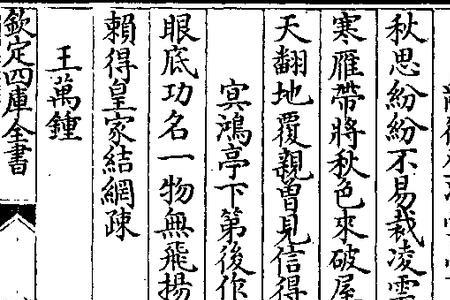 秋思紛紛不易裁凌雲
寒雁帶將秋色來破屋
天翻地覆親曾見信得
㝠鴻亭下第後作
眼底功名一物無飛揚
賴得皇家結網疎
王萬鍾
欽定四庫全書